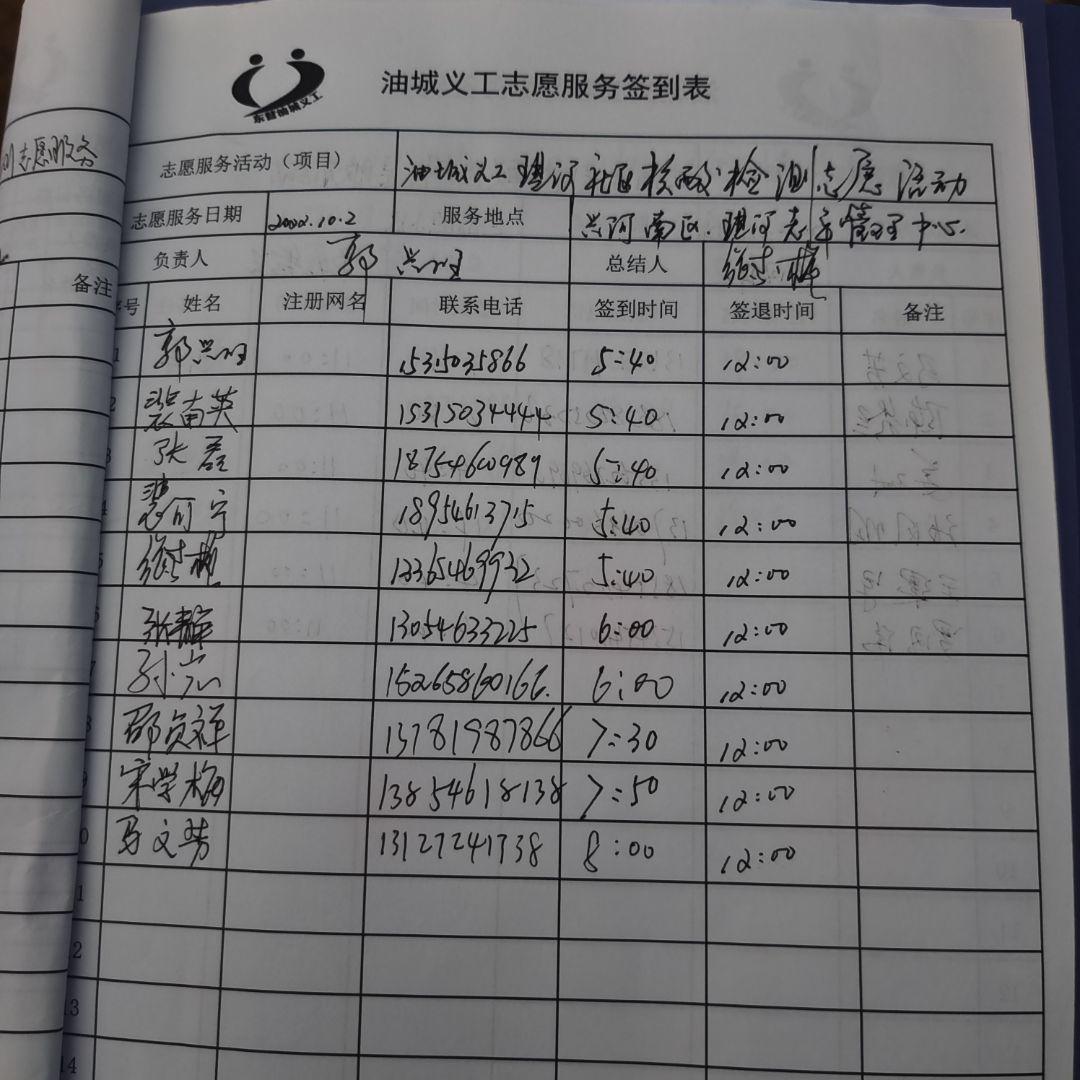 东营油城义工
油城义工志愿服务签到表
志愿服务
备注
志愿服务活动（项目） 油城义工 社区核酸检测志愿活动
志愿服务日期 2022.10.2 服务地点 兴河南区. 中心.
负责人 郭兴 总结人
序号 姓名 注册网名 联系电话 签到时间 签退时间 备注
1 郭兴 5:40 12:00
2 裴南英 15315034444 5:40 12:00
3 张磊 18754660989 5:40 12:00
4 18954613715 5:40 12:00
5 13365469932 5:40 12:00
6 张静 13054633225 6:00 12:00
7 孙 15265860166. 6:00 12:00
8 邵贞祥 13781987866 7:30 12:00
9 宋学梅 13854618138 7:50 12:00
10 马文芳 13127241738 8:00 12:00
11
12
13
14